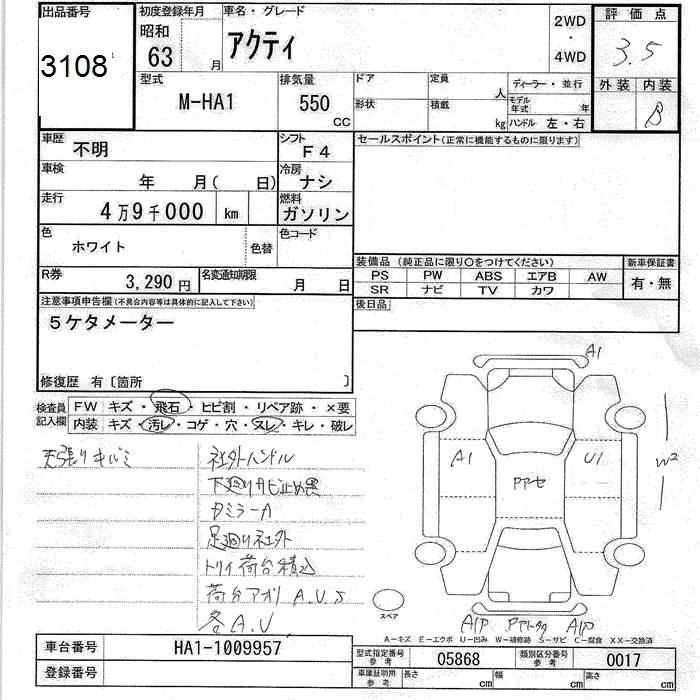 出品番号
3108
初度登録年月
昭和
63 月
車名・グレード
アクティ
2WD
・
4WD
評価点
3.5
外装 内装
B
型式
M-HA1
排気量
550
CC
ドア
定員
人
形状
積載
kg
ディーラー・並行
モデル年式 年
ハンドル 左・右
車歴
不明
シフト
F4
セールスポイント(正常に機能するものに限ります)
車検
年 月( 日)
冷房
ナシ
走行
4万9千000 km
燃料
ガソリン
色
ホワイト
色替
色コード
装備品 (純正品に限り〇をつけてください)
PS PW ABS エアB AW
SR ナビ TV カワ
新車保証書
有・無
R券
3,290円
名変通知期限
月 日
後日品
注意事項申告欄(不具合内容等は具体的に記入して下さい)
5ケタメーター
修復歴 有〔箇所 〕
検査員記入欄
FW キズ・飛石・ヒビ割・リペア跡・×要
内装 キズ・汚レ・コゲ・穴・スレ・キレ・破レ
天張りキバミ
社外ハンドル
下廻りサビ止め黒
足廻り社外
トリイ荷台積込
荷台アオリ A.U.S
各A.U
A1
A1
U1
W2
スペア
A1P
A1P
A-キズ E-エクボ U-凹み W-補修跡 S-サビ C-腐食 XX-交換済
車台番号
HA1-1009957
登録番号
型式指定番号 参考
05868
類別区分番号 参考
0017
車庫証明用 参考
長さ cm
幅 cm
高さ cm